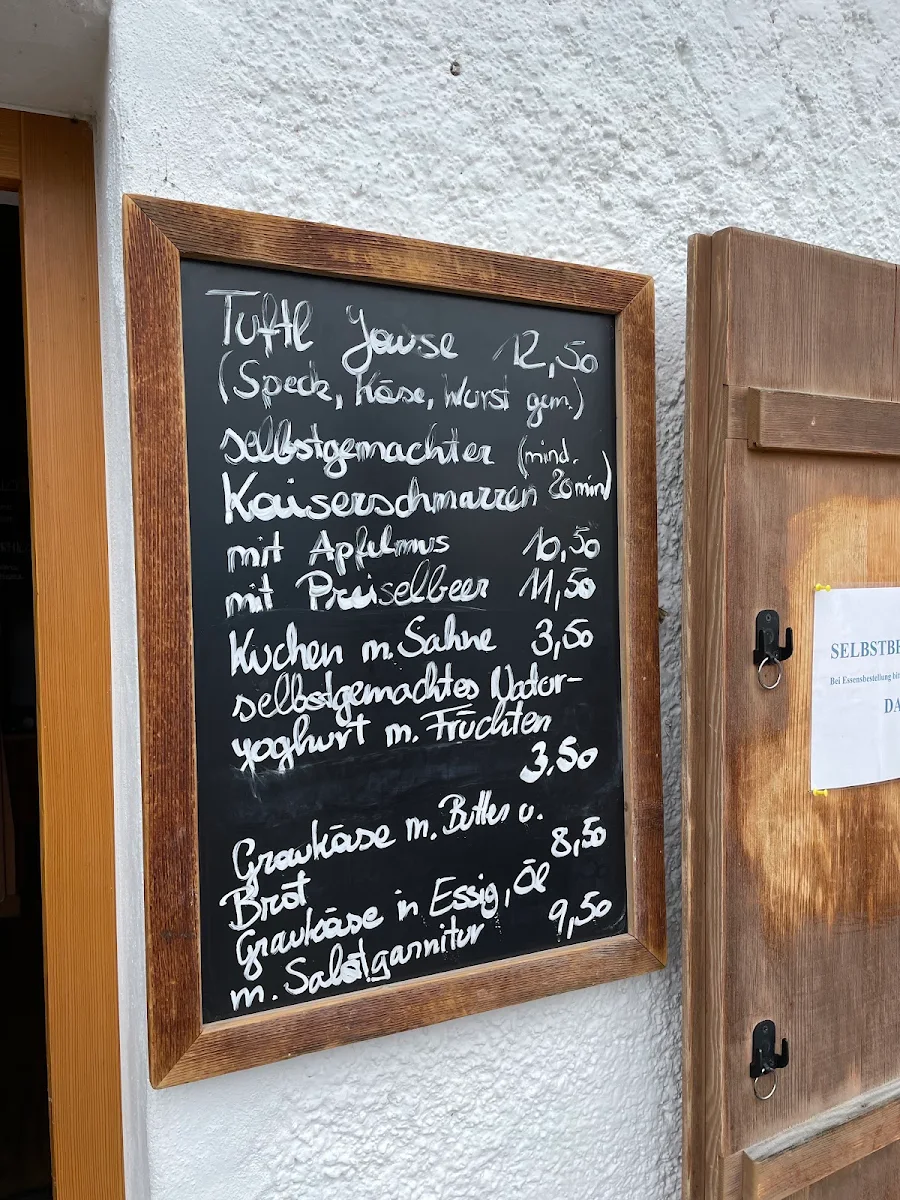 Tuftl Jause 12,50
(Speck, Käse, Wurst gem.)
selbstgemachter (mind.
Kaiserschmarren 20 min)
mit Apfelmus 10,50
mit Preiselbeer 11,50
Kuchen m. Sahne 3,50
selbstgemachtes Natur-
yoghurt m. Früchten
3.50
Graukäse m. Butter u.
Brot 8,50
Graukäse in Essig, Öl
m. Salatgarnitur 9,50
SELBSTBE
Bei Essensbestellung bi
DA